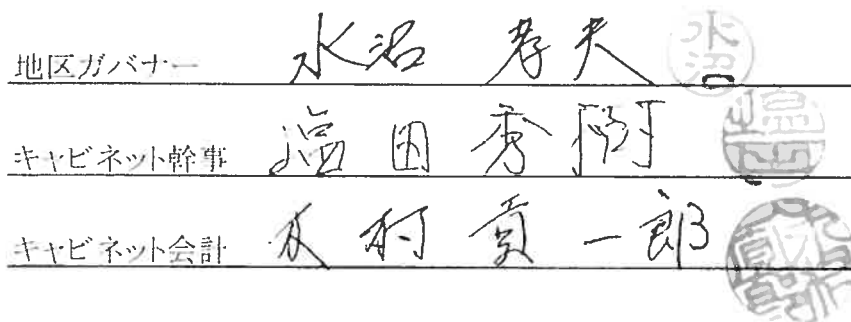 地区ガバナー 水沼 孝夫 水沼
キャビネット幹事 塩田秀 塩田
キャビネット会計 木村貢一郎